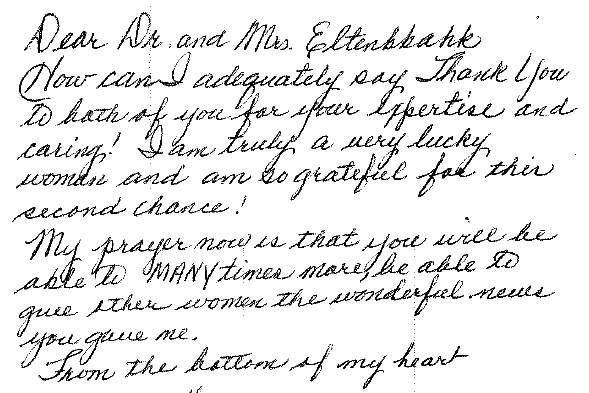 Dear Dr. and Mrs. Eltenbbahk
How can I adequately say Thank You
to both of you for your expertise and
caring! I am truly a very lucky
woman and am so grateful for this
second chance!
My prayer now is that you will be
able to MANY times more, be able to
give other women the wonderful news
you gave me.
From the bottom of my heart